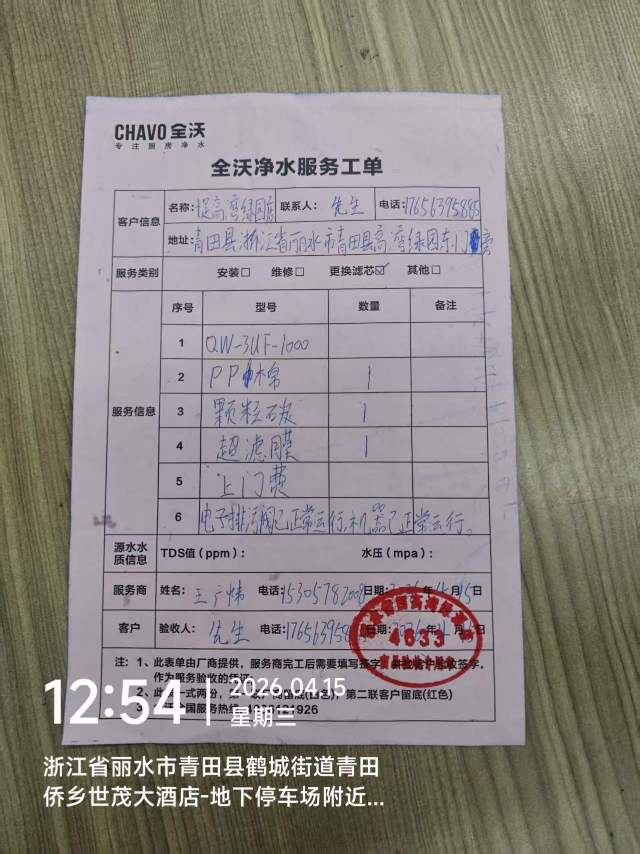 CHAVO 全沃
专注厨房净水
全沃净水服务工单
客户信息 名称: 堤高,弯绿园店 联系人: 先生 电话: 17656395885
地址: 青田县,浙江省丽水市青田县高,弯绿园东门
服务类别 安装□ 维修□ 更换滤芯☑ 其他□
服务信息 序号 型号 数量 备注
1 QW-3UF-1000
2 PP棉 1
3 颗粒碳 1
4 超滤膜 1
5 上门费
6 电子排污阀已正常运行,机器已正常运行。
源水水质信息 TDS值(ppm): 水压(mpa):
服务商 姓名: 王广炜 电话: 15305782008 日期: 年 月15日
客户 验收人: 先生 电话: 1765639588 日期: 年 月15日
4833
注: 1、此表单由厂商提供,服务商完工后需要填写签字,并找客户验收签字,
作为服务验收的凭证
2、此 一式两份,第一联 商留底(白色),第二联客户留底(红色)
3、 国服务热线:
12:54
2026.04.15
星期三
浙江省丽水市青田县鹤城街道青田
侨乡世茂大酒店-地下停车场附近...